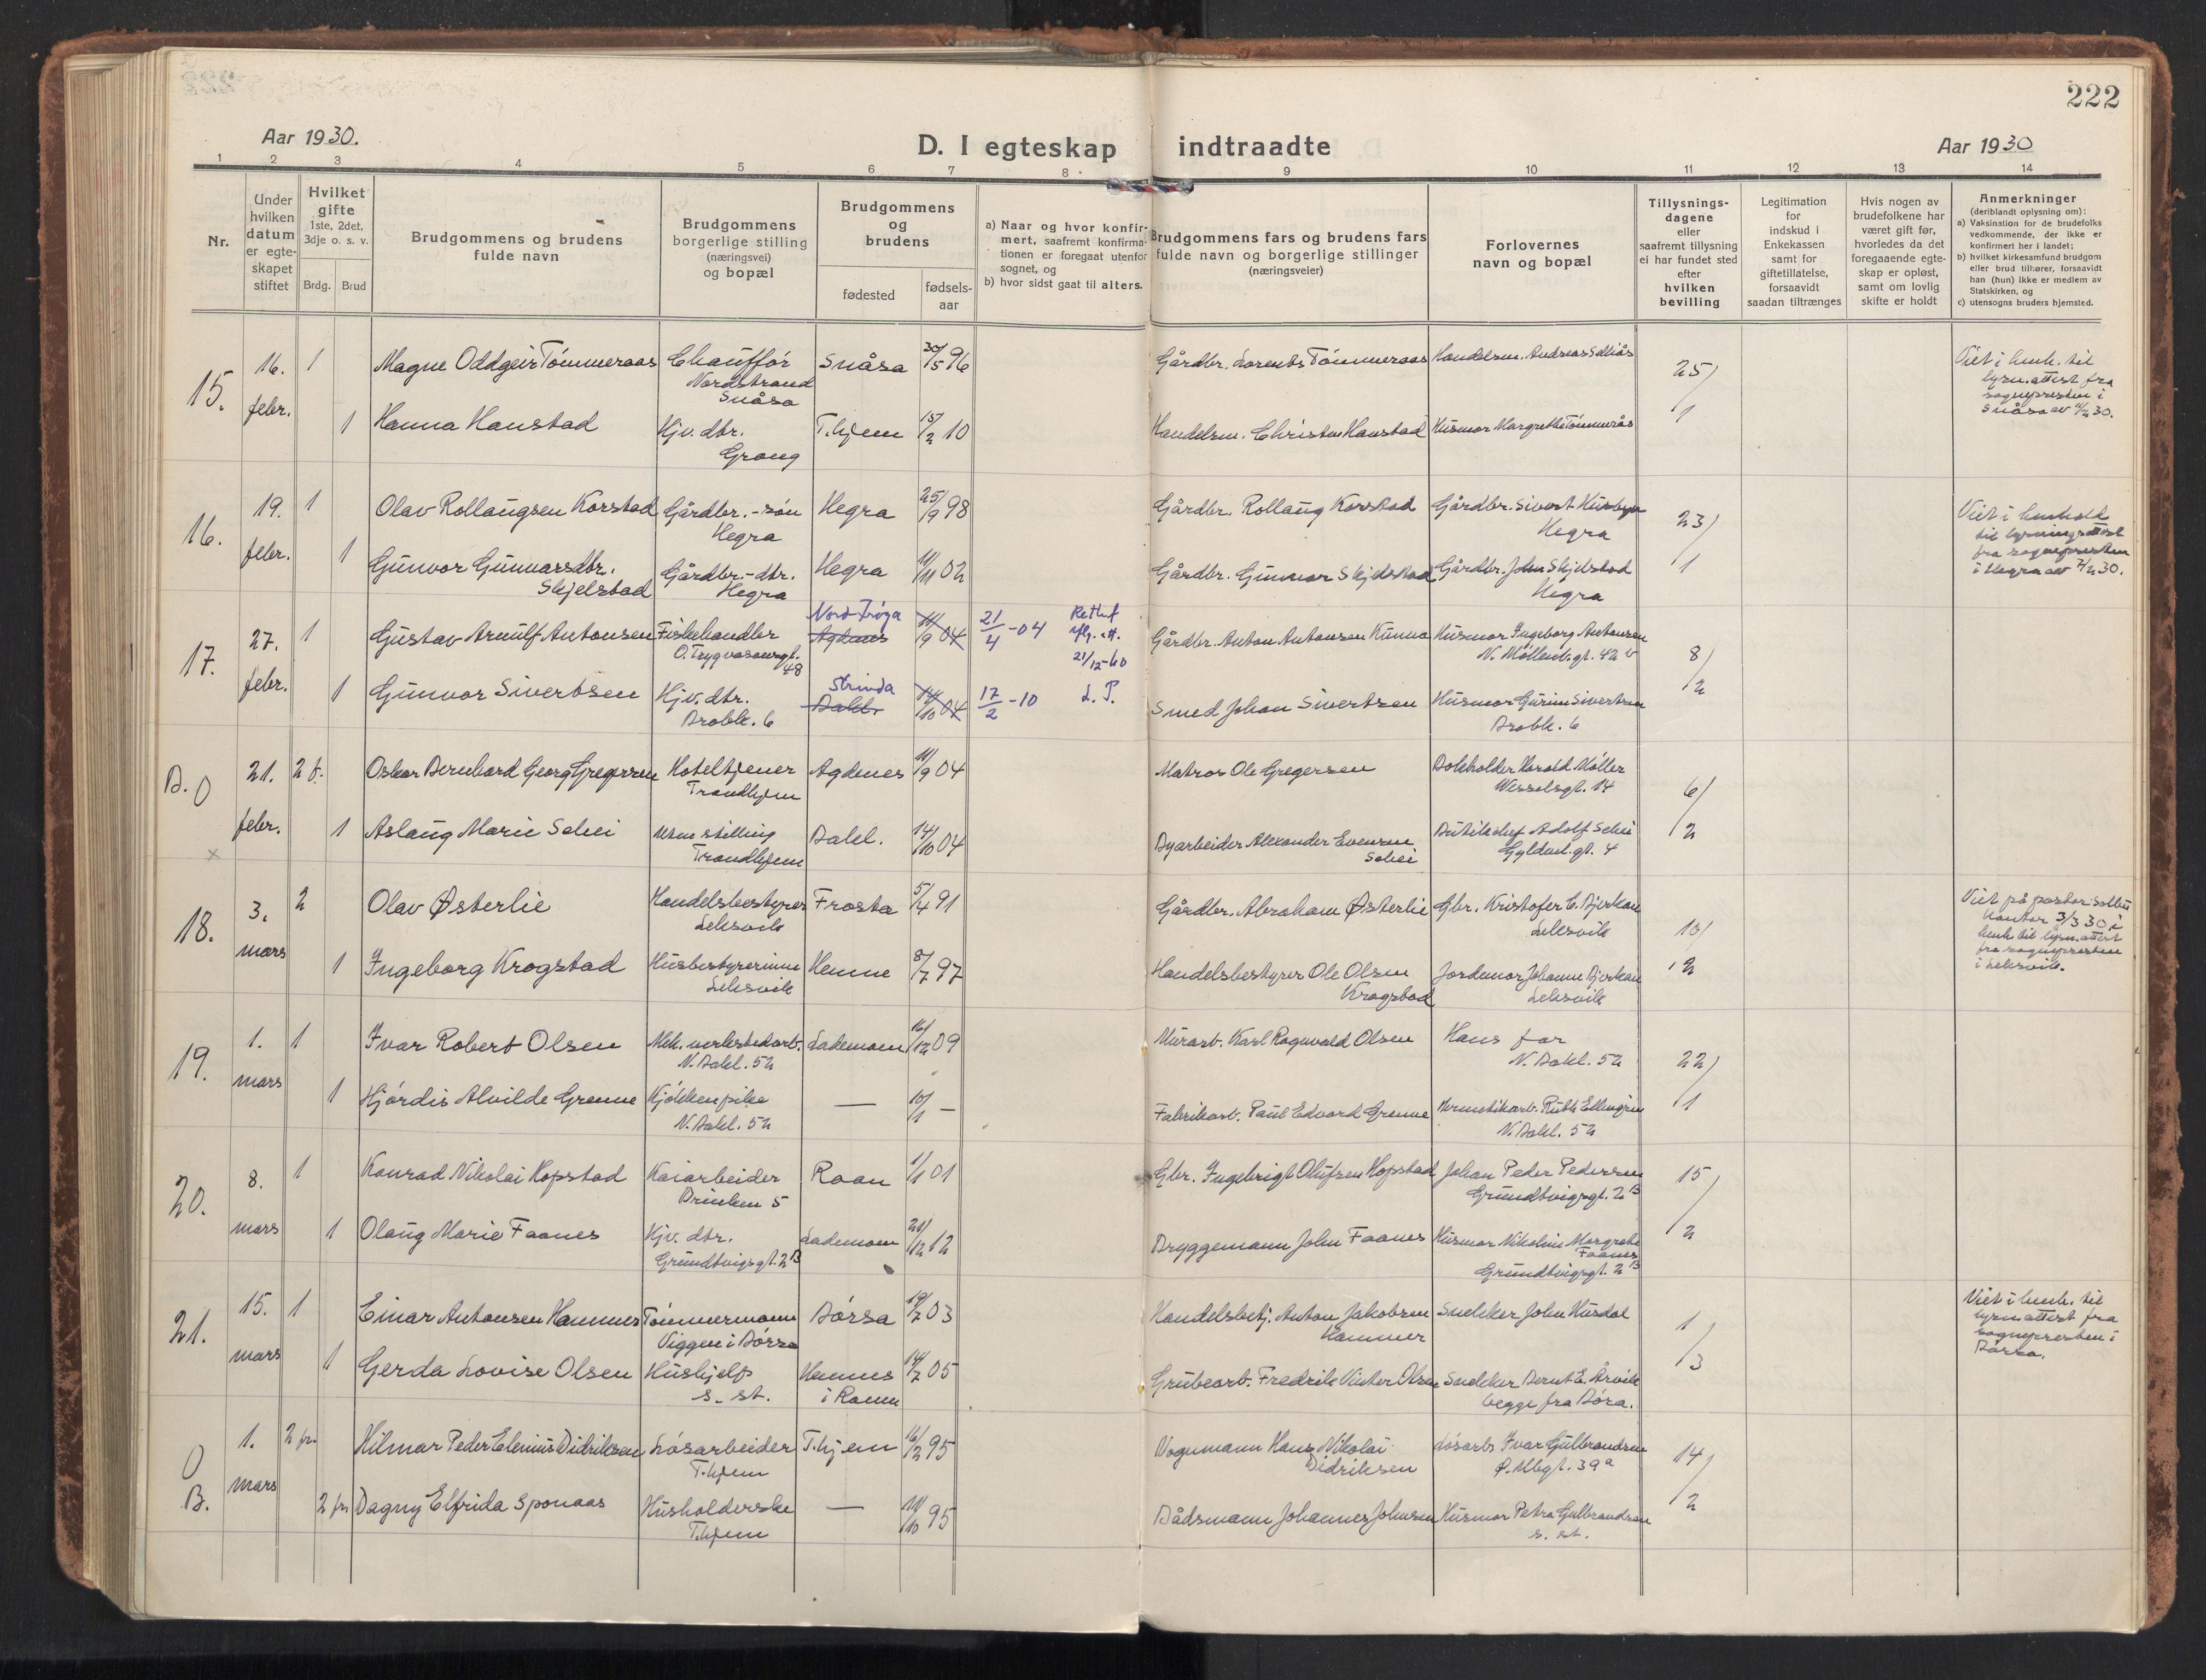 222
Aar 1930.
D. I egteskap indtraadte
Aar 1930
1 2 3 4 5 6 7 8 9 10 11 12 13 14
Nr.
Under
hvilken
datum
er egte-
skapet
stiftet
Hvilket
gifte
1ste, 2det,
3dje o. s. v.
Brdg. Brud
Brudgommens og brudens
fulde navn
Brudgommens
borgerlige stilling
(næringsvei)
og bopæl
Brudgommens
og
brudens
fødested
fødsels-
aar
a) Naar og hvor konfir-
mert, saafremt konfirma-
tionen er foregaat utenfor
sognet, og
b) hvor sidst gaat til alters.
Brudgommens fars og brudens fars
fulde navn og borgerlige stillinger
(næringsveier)
Forlovernes
navn og bopæl
Tillysnings-
dagene
eller
saafremt tillysning
ei har fundet sted
efter
hvilken
bevilling
Legitimation
for
indskud i
Enkekassen
samt for
giftetillatelse,
forsaavidt
saadan tiltrænges
Hvis nogen av
brudefolkene har
været gift før,
hvorledes da det
foregaaende egte-
skap er opløst,
samt om lovlig
skifte er holdt
Anmerkninger
(deriblandt oplysning om):
a) Vaksination for de brudefolks
vedkommende, der ikke er
konfirmert her i landet;
b) hvilket kirkesamfund brudgom
eller brud tilhører, forsaavidt
han (hun) ikke er medlem av
Statskirken, og
c) utensogns bruders hjemsted.
15. 16. febr. 1 Magne Oddgeir Tömmeraas Chaufför Nordstrand Snåsa Snåsa 30/5 96 Gårdbr. Lorents Tömmeraas Handelsm. Andreas 25/1
Viet i henh. til
lysn.attest fra
sognepresten i
Snåsa av 30.
1 Hanna Hanstad Hjv. dtr. Grong T.hjem 15/2 10 Handelsm. Christen Hanstad Husmor Margrethe Tömmerås
16. 19. febr. 1 Olav Rollaugsen Korstad Gårdbr.-sön Hegra Hegra 25/9 98 Gårdbr. Rollaug Korstad Gårdbr. Sivert Husbye Hegra 23/1
Viet i henhold
til lysningsattest
fra sognepresten
i Hegra av 30.
1 Gunvor Gunnarsdtr. Skjelstad Gårdbr.-dtr. Hegra Hegra 11/11 02 Gårdbr. Gunnar Skjelstad Gårdbr. John Skjelstad Hegra
17. 27. febr. 1 Gustav Arnulf Antonsen Fiskehandler O. Trygvasonsgt. 48 Nord-Fröya Agdenes 11/9 04 21/4-04 Rettet 21/12-40 Gårdbr. Anton Antonsen Kunna Husmor Ingeborg Antonsen N. Möllenb.gt. 42 b 8/2
1 Gunvor Sivertsen Hjv. dtr. Brobk. 6 Strinda Bakl. 14/10 04 17/2-10 L. P. Smed Johan Sivertsen Husmor Gurine Sivertsen Brobk. 6
B. O 21. febr. 2 f. Oskar Bernhard Georg Gregersen Hoteltjener Trondhjem Agdenes 11/9 04 Matros Ole Gregersen Bokholder Harald Möller Wesselsgt. 14 6/2
× 1 Aslaug Marie Schei Uten stilling Trondhjem Bakl. 14/10 04 Byarbeider Alexander Evensen Schei Butikchef Adolf Schei Gyldenl. gt. 4
18. 3. mars 2 Olav Østerlie Handelsbestyrer Leksvik Frosta 5/4 91 Gårdbr. Abraham Østerlie Gbr. Kristofer C. Bjerkan Leksvik 10/2
Viet på pastor Solbus
kontor 3/3 30 i
henh. til lysn.attest
fra sognepresten
i Leksvik.
1 Ingeborg Krogstad Husbestyrerinne Leksvik Hemne 8/7 97 Handelsbestyrer Ole Olsen Krogstad Jordemor Johanne Bjerkan Leksvik
19. 1. mars 1 Ivar Robert Olsen Mek. verkstedarb. N. Bakl. 52 Lademoen 16/12 09 Murarb. Karl Ragnvald Olsen Hans far N. Bakl. 52 22/1
1 Hjördis Alvilde Grenne Kjökkenpike N. Bakl. 52 — 10/1 — Fabrikarb. Paul Edvard Grenne Hermetikarb. Ruth Ellingsen N. Bakl. 52
20. 8. mars 1 Konrad Nikolai Hopstad Kaiarbeider Brinken 5 Roan 1/1 01 Gbr. Ingebrigt Olufsen Hopstad Johan Peder Pedersen Grundtvigsgt. 2 B 15/2
1 Olaug Marie Faanes Hjv. dtr. Grundtvigsgt. 2 B Lademoen 21/12 12 Bryggemann John Faanes Husmor Nikoline Margrete Faanes Grundtvigsgt. 2 B
21. 15. mars 1 Einar Antonsen Hammer Tömmermann Viggen i Börsa Börsa 19/7 03 Handelsbetj. Anton Jakobsen Hammer Snekker John Husdal 1/3
Viet i henh. til
lysn.attest fra
sognepresten i
Börsa.
1 Gerda Lovise Olsen Hushjelp s. st. Hemnes i Ranen 14/7 05 Grubearb. Fredrik Vinter Olsen Snekker Bernt E. Årvik begge fra Börsa.
O B. 1. mars 2 fr. Hilmar Peder Elenius Didriksen Lösarbeider T.hjem T.hjem 16/2 95 Vognmann Hans Nikolai Didriksen Lösarb. Ivar Gulbrandsen Ø. Mbgt. 39 a 14/2
2 fr. Dagny Elfrida Sponaas Husholderske T.hjem — 11/10 95 Bådsmann Johannes Johnsen Husmor Petra Gulbrandsen s. st.